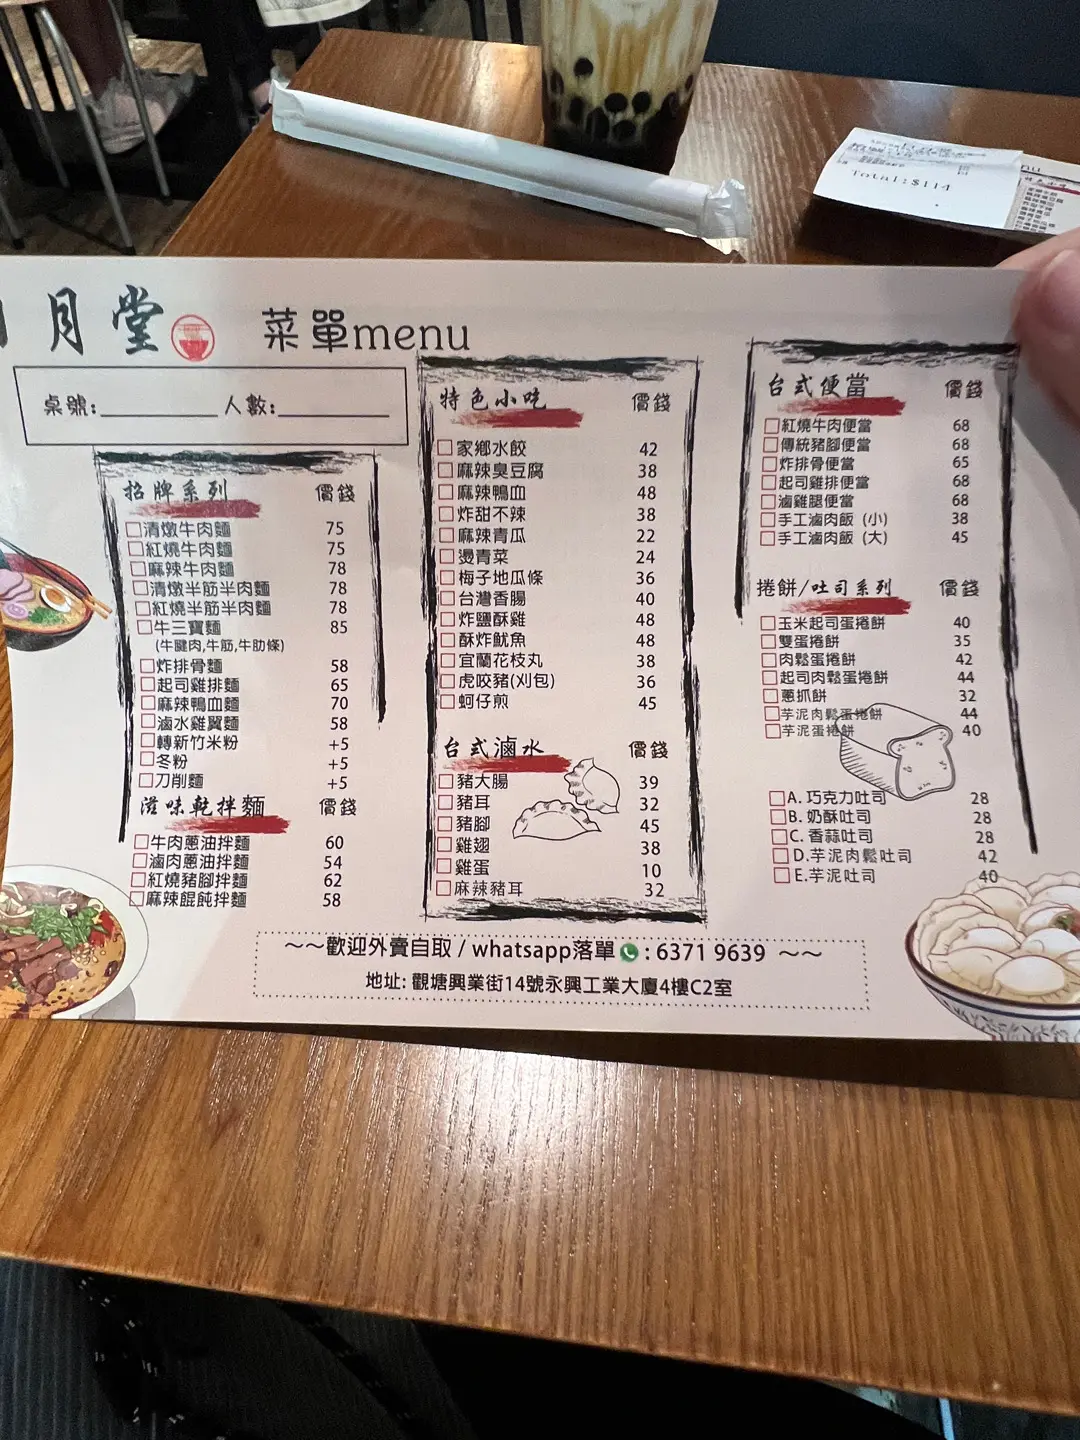 Total:$114
nu
月堂 菜單menu
桌號: 人數:
招牌系列 價錢
清燉牛肉麵 75
紅燒牛肉麵 75
麻辣牛肉麵 78
清燉半筋半肉麵 78
紅燒半筋半肉麵 78
牛三寶麵 85
(牛腱肉,牛筋,牛肋條)
炸排骨麵 58
起司雞排麵 65
麻辣鴨血麵 70
滷水雞翼麵 58
轉新竹米粉 +5
冬粉 +5
刀削麵 +5
滋味乾拌麵 價錢
牛肉蔥油拌麵 60
滷肉蔥油拌麵 54
紅燒豬腳拌麵 62
麻辣餛飩拌麵 58
特色小吃 價錢
家鄉水餃 42
麻辣臭豆腐 38
麻辣鴨血 48
炸甜不辣 38
麻辣青瓜 22
燙青菜 24
梅子地瓜條 36
台灣香腸 40
炸鹽酥雞 48
酥炸魷魚 48
宜蘭花枝丸 38
虎咬豬(刈包) 36
蚵仔煎 45
台式滷水 價錢
豬大腸 39
豬耳 32
豬腳 45
雞翅 38
雞蛋 10
麻辣豬耳 32
台式便當 價錢
紅燒牛肉便當 68
傳統豬腳便當 68
炸排骨便當 65
起司雞排便當 68
滷雞腿便當 68
手工滷肉飯 (小) 38
手工滷肉飯 (大) 45
捲餅/吐司系列 價錢
玉米起司蛋捲餅 40
雙蛋捲餅 35
肉鬆蛋捲餅 42
起司肉鬆蛋捲餅 44
蔥抓餅 32
芋泥肉鬆蛋捲餅 44
芋泥蛋捲餅 40
A. 巧克力吐司 28
B. 奶酥吐司 28
C. 香蒜吐司 28
D.芋泥肉鬆吐司 42
E.芋泥吐司 40
~~歡迎外賣自取 / whatsapp落單 : 6371 9639 ~~
地址: 觀塘興業街14號永興工業大廈4樓C2室